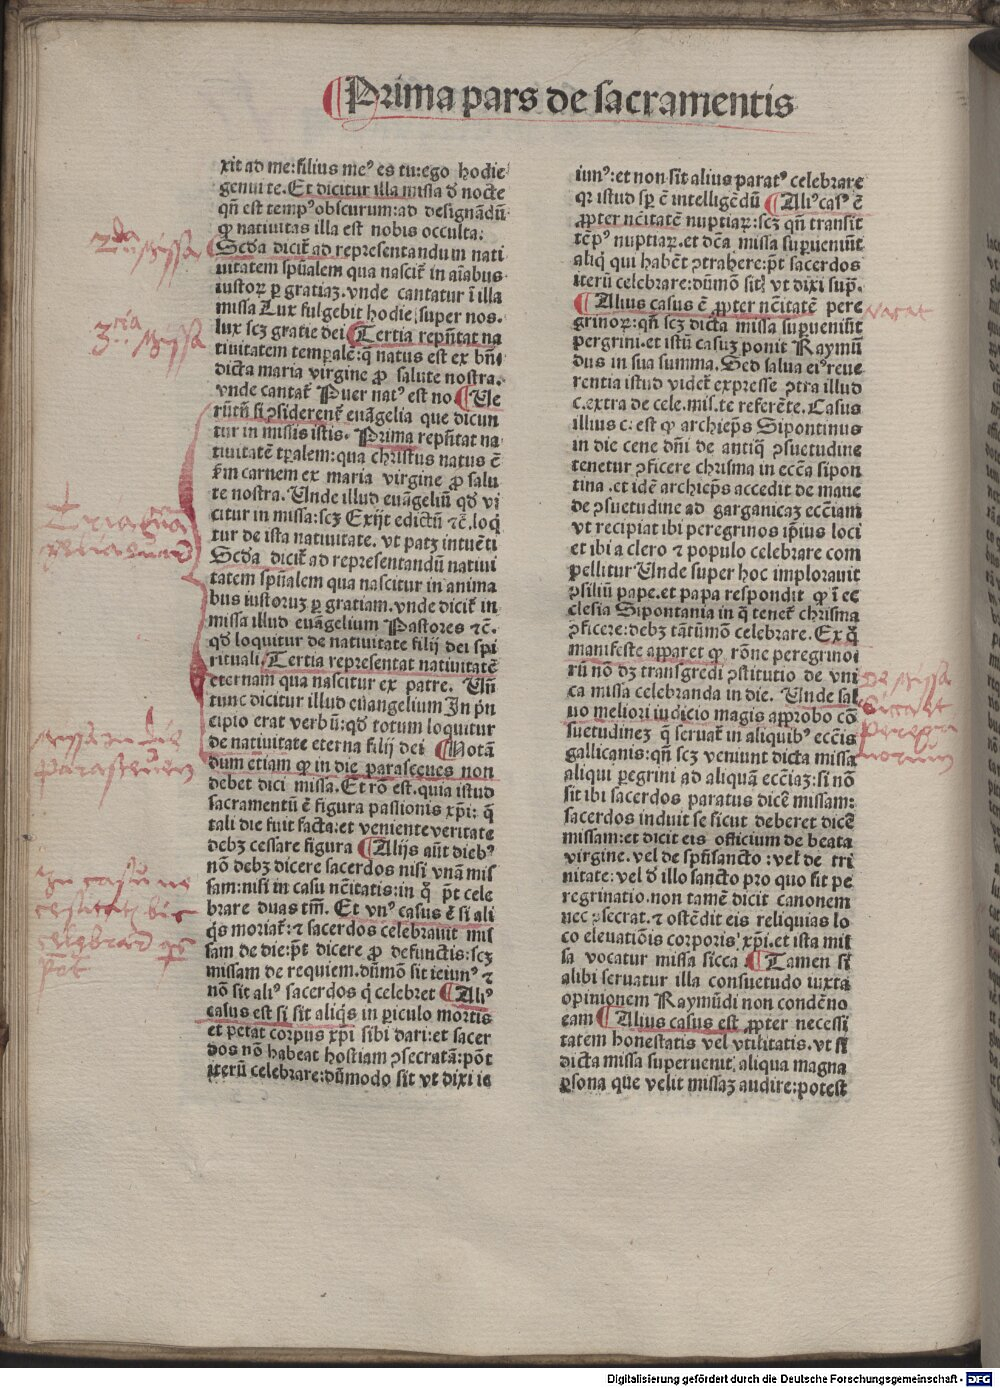 ¶Prima pars de sacramentis
xit ad me: filius meꝰ es tu: ego hodie
genui te. Et dicitur illa missa đ nocte
qn̄ est tempꝰ obscurum: ad designādū
ꝙ natiuitas illa est nobis occulta:
¶Scđa dicit᷑ ad representandum nati
uitatem spūalem qua nascit᷑ in aīabus
iustoꝝ ꝑ gratiaꝫ. vnde cantatur ī illa
missa Lux fulgebit hodie super nos.
lux scꝫ gratie dei ¶Tertia repn̄tat na
tiuitatem temꝑalē: q̄ natus est ex bn̄e
dicta maria virgine ꝓ salute nostra.
vnde cantat᷑ Puer natꝰ est no ¶Ue
rūtn̄ si ꝯsiderent᷑ euāgelia que dicun
tur in missis istis. Prima repn̄tat na
tiuitatē tꝑalem: qua christus natus ē
ẜm carnem ex maria virgine ꝓ salu
te nostra. Unde illud euāgeliū qđ vi
citur in missa: scꝫ Exijt edictū ⁊c̄. loq̇
tur de ista natiuitate. vt patꝫ intuēti
Scđa dicit᷑ ad representandū natiui
tatem spūalem qua nascitur in anima
bus iustoruꝫ ꝑ gratiam. vnde dicit᷑ in
missa illud euāgelium Pastores ⁊c̄.
qđ loquitur de natiuitate filij dei spi
rituali. Tertia representat natiuitatē
eternam qua nascitur ex patre. Un̄
tunc dicitur illud euangelium In pn̄
cipio erat verbū: qđ totum loquitur
de natiuitate eterna filij dei ¶Notā
dum etiam ꝙ in die parasceues non
debet dici missa. Et rō est. quia istud
sacramentū ē figura passionis xp̄i: q̄
tali die fuit facta: et veniente veritate
debꝫ cessare figura ¶Alijs aūt diebꝰ
nō debꝫ dicere sacerdos nisi vnā mis
sam: nisi in casu nc̄itatis: in q̊ pt̄ cele
brare duas tm̄. Et vnꝰ casus ē si ali
q̇s moriat᷑: ⁊ sacerdos celebrauit mis
sam de die: pt̄ dicere ꝓ defunctis: scꝫ
missam de requiem. dūmō sit ieiunꝰ ⁊
nō sit aliꝰ sacerdos q̇ celebret ¶Aliꝰ
casus est si sit aliq̇s in ꝑiculo mortis
et petat corpus xp̄i sibi dari: et sacer
dos nō habeat hostiam ꝯsecratā: pōt
iterū celebrare: dūmodo sit vt dixi ie
iunꝰ: et non sit alius paratꝰ celebrare
qꝛ istud sꝑ ē intelligēdū ¶Aliꝰ casꝰ ē
ꝓpter nc̄itatē nuptiaꝝ: scꝫ qn̄ transit
tēpꝰ nuptiaꝝ. et dc̄a missa suꝑueniūt
aliq̇ qui habēt ꝯtrahere: pt̄ sacerdos
iterū celebrare: dūmō sit vt dixi supͣ.
¶Alius casus ē ꝓpter nc̄itatē pere
grinoꝝ: qn̄ scꝫ dicta missa suꝑueniūt
ꝑegrini. et istū casuꝫ ponit Raymū
dus in sua summa. Sed salua eiꝰ reue
rentia istud videt᷑ expresse ꝯtra illud
c. extra de cele. mis. te referēte. Casus
illius c. est ꝙ archiep̄s Sipontinus
in die cene dn̄i de antiq̄ ꝯsuetudine
tenetur ꝯficere chrisma in ecc̄a sipon
tina. et idē archiep̄s accedit de mane
de ꝯsuetudine ad garganicaꝫ ecc̄iam
vt recipiat ibi peregrinos ip̄ius loci
et ibi a clero ⁊ populo celebrare com
pellitur Unde super hoc implorauit
ꝯsiliū pape. et papa respondit ꝙ ī ec
clesia Sipontania in q̄ tenet᷑ chrisma
ꝯficere: debꝫ tātūmō celebrare. Ex q̊
manifeste apparet ꝙ rōne peregrino
rū nō dꝫ transgredi ꝯstitutio de vni
ca missa celebranda in die. Unde sal
uo meliori iudicio magis approbo cō
suetudineꝫ q̄ seruat᷑ in aliquibꝰ ecc̄iis
gallicanis: qn̄ scꝫ veniunt dicta missa
aliqui ꝑegrini ad aliquā ecc̄iaꝫ: si nō
sit ibi sacerdos paratus dicē missam:
sacerdos induit se sicut deberet dicē
missam: et dicit eis officium de beata
virgine. vel de spū sancto: vel de tri
nitate: vel đ illo sancto pro quo fit pe
regrinatio. non tamē dicit canonem
nec ꝯsecrat. ⁊ ostēdit eis reliquias lo
co eleuatiōis corporis xp̄i. et ista mis
sa vocatur missa sicca: ¶Tamen si
alibi seruatur illa consuetudo iuxta
opinionem Raymūdi non condēno
eam ¶Alius casus est ꝓpter necessi
tatem honestatis vel vtilitatis. vt si
dicta missa superuenit aliqua magna
ꝑsona que velit missaꝫ audire: potest
2da Missa
3cia Missa
Missa in die
parasceuen
In casu ne
De Missa
Sicca et
Peregri
norum
Digitalisierung gefördert durch die Deutsche Forschungsgemeinschaft - DFG